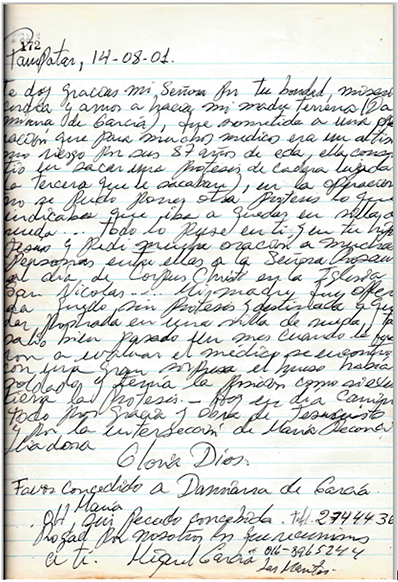 172
Pampatar, 14-08-01.
Te doy gracias mi Señora por tu bondad, miseri
cordia y amor a hacia mi madre terrena (Da
miana de García), fue sometida a una ope
ración que para muchos medicos era un altisi
mo riesgo por sus 87 años de eda, ella consis
tio en sacar una Protesis de cadera
la tercera que le sacaban), en la operacion
no se pudo poner otra Protesis lo que
indicaba que iba a quedar en silla de
rueda... Todo lo puse en ti y en tu hijo
Jesus y Pedi mucha oración a muchas
Personas entre ellas a la Señora
el dia de Corpus Christi en la Iglesia
San Nicolas... Mi madre fue opera
da quedo sin protesis y destinada a que
dar postrada en una silla de rueda,
salio bien Pasado un mes cuando la
ron a evaluar el medico se encontro
con una gran sorpresa el hueso habia
soldado y tenia la posicion como si es
tuviera la Protesis.- Hoy en dia camina
todo por Gracia y Obra de Jesucristo
y Por la intersección de María Reconci
liadora
Gloria Dios.
Favor concedido a Damiana de García.
Oh, María
sin Pecado concebida. Telf. 2744436
rogad por nosotros los que recurrimos
a ti. Miguel García 016-8965244
Los Mantos.